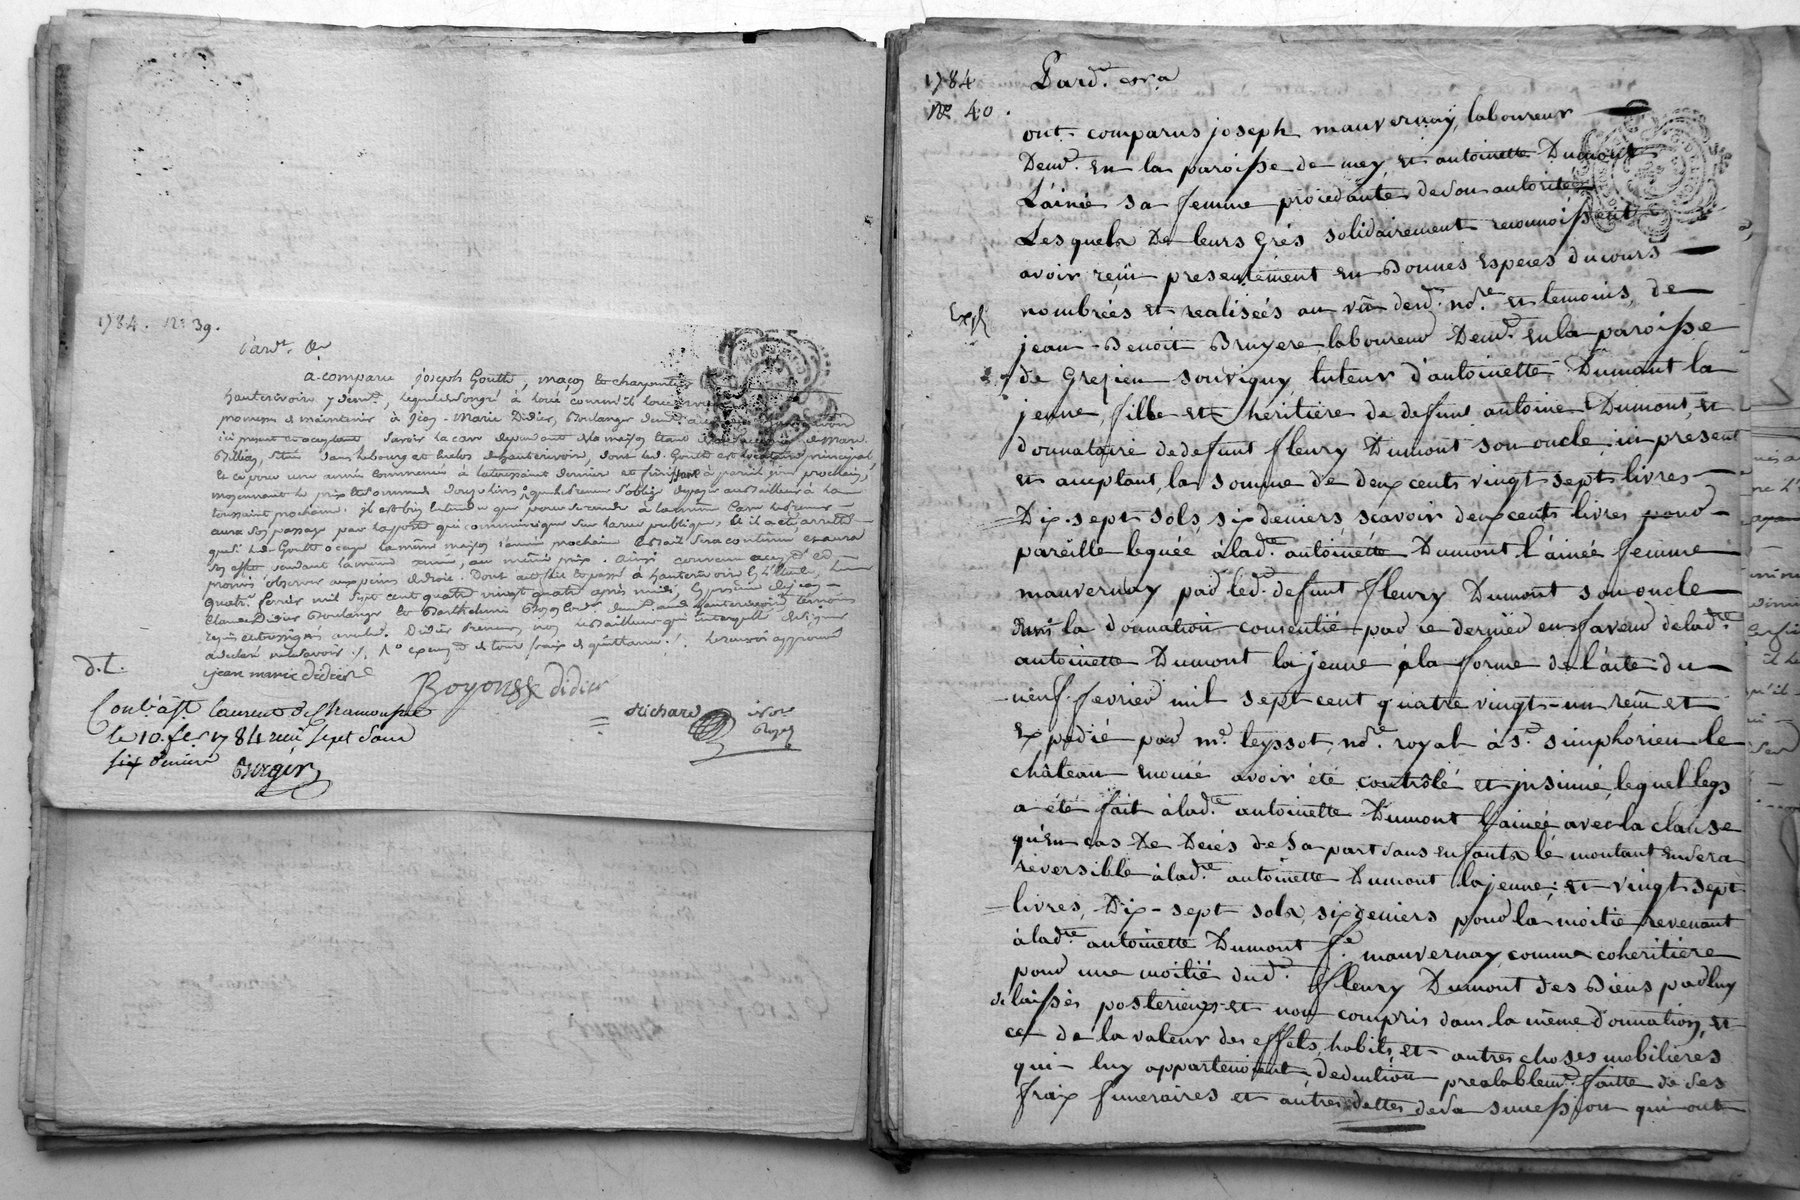 1784. No 39.
Pard.t &
a comparu joseph Goutte, maçon & charpentier
hauterivoire y dem.t, lequel
promesse de maintenir à jean-Marie Didier, Boulanger dem.t
ici present et acceptant savoir la cave dependant de la maison
Billiez, située dans le bourg et enclos de hauterivoire, dont led. Goutte est locataire principal,
et ce pour une année commencée à la toussaint dernier et finissant à pareil jour prochain,
moyennant le prix et somme de douze livres que le preneur s'oblige de payer au Bailleur à la
toussaint prochaine. il est bien entendu que pour se rendre à la même cave le preneur
aura son passage par la porte qui communique sur la rue publique, et il a été arretté
que si led. Goutte occupe la même maison l'année prochaine le Bail sera continué et aura
son effet pendant la même année, au même prix. ainsi convenu accepté et
promis observer aux peines de droit. Dont acte fait et passé à hauterivoire en l'Etude, le
quatre fevrier mil sept cent quatre vingt quatre après midi, en presence de jean
Claude Didier Boulanger et Barthelemi
requis et Didier Preneur, non le Bailleur qui interpellé de signer
a declaré ne le savoir ./. approuvé
jean marie didier
Boyousse didier
d.t.
Cont. à st. laurent de Chamousset
le 10. fev. 1784 reçu sept sous
six deniers
Berger
Richard
no.re
Royal
1784
No. 40.
Pard.t
ont comparus joseph mauvernay, laboureur
Dem.t en la paroisse de mey, et antoinette Dumont
L'ainée sa femme procedante de son autorité
Lesquels De leurs Grés solidairement reconnoissent
avoir reçu presentement en Bonnes Especes du cours
nombrées et realisées au vû desd. no.re et temoins, de
Exp.é
jean-Benoit Bruyere laboureur Dem.t en la paroisse
de Grezieu souvigny tuteur d'antoinette Dumont la
jeune, fille et heritiére de defunt antoine Dumont, et
donnataire de defunt fleury Dumont son oncle, ici present
et acceptant, la somme de deux cents vingt sept livres
Dix-sept sols, six deniers scavoir deux cents livres pour
pareille leguée à lad.te antoinette Dumont l'ainée femme
mauvernay par led. defunt fleury Dumont son oncle
Dans la donnation consentie par ce dernier en faveur de lad.te
antoinette Dumont la jeune à la forme de l'acte du
neuf fevrier mil sept cent quatre vingt-un reçu et
Expedié par m.e leyssot no.re royal à s.t simphorien le
château enoncé avoir été contrôlé et insinué, lequel legs
a été fait à lad.te antoinette Dumont l'ainée avec la clause
qu'en cas De Decés de sa part sans enfants le montant en sera
réversible à lad.te antoinette Dumont la jeune; et vingt sept
livres, Dix-sept sols, six deniers pour la moitié revenant
à lad.te antoinette Dumont f.e mauvernay comme coheritiere
pour une moitié dud. fleury Dumont des Biens par luy
delaissés posterieurs et non compris dans la même donnation, et
ce de la valeur des effets, habits, et autres choses mobilieres
qui luy appartenoient, deduction prealablem.t faitte de ses
fraix funeraires et autres dettes de sa succession qui ont